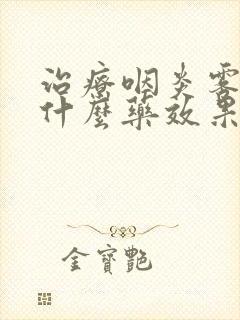 治療咽炎霧
什麼藥效果
金寶艷